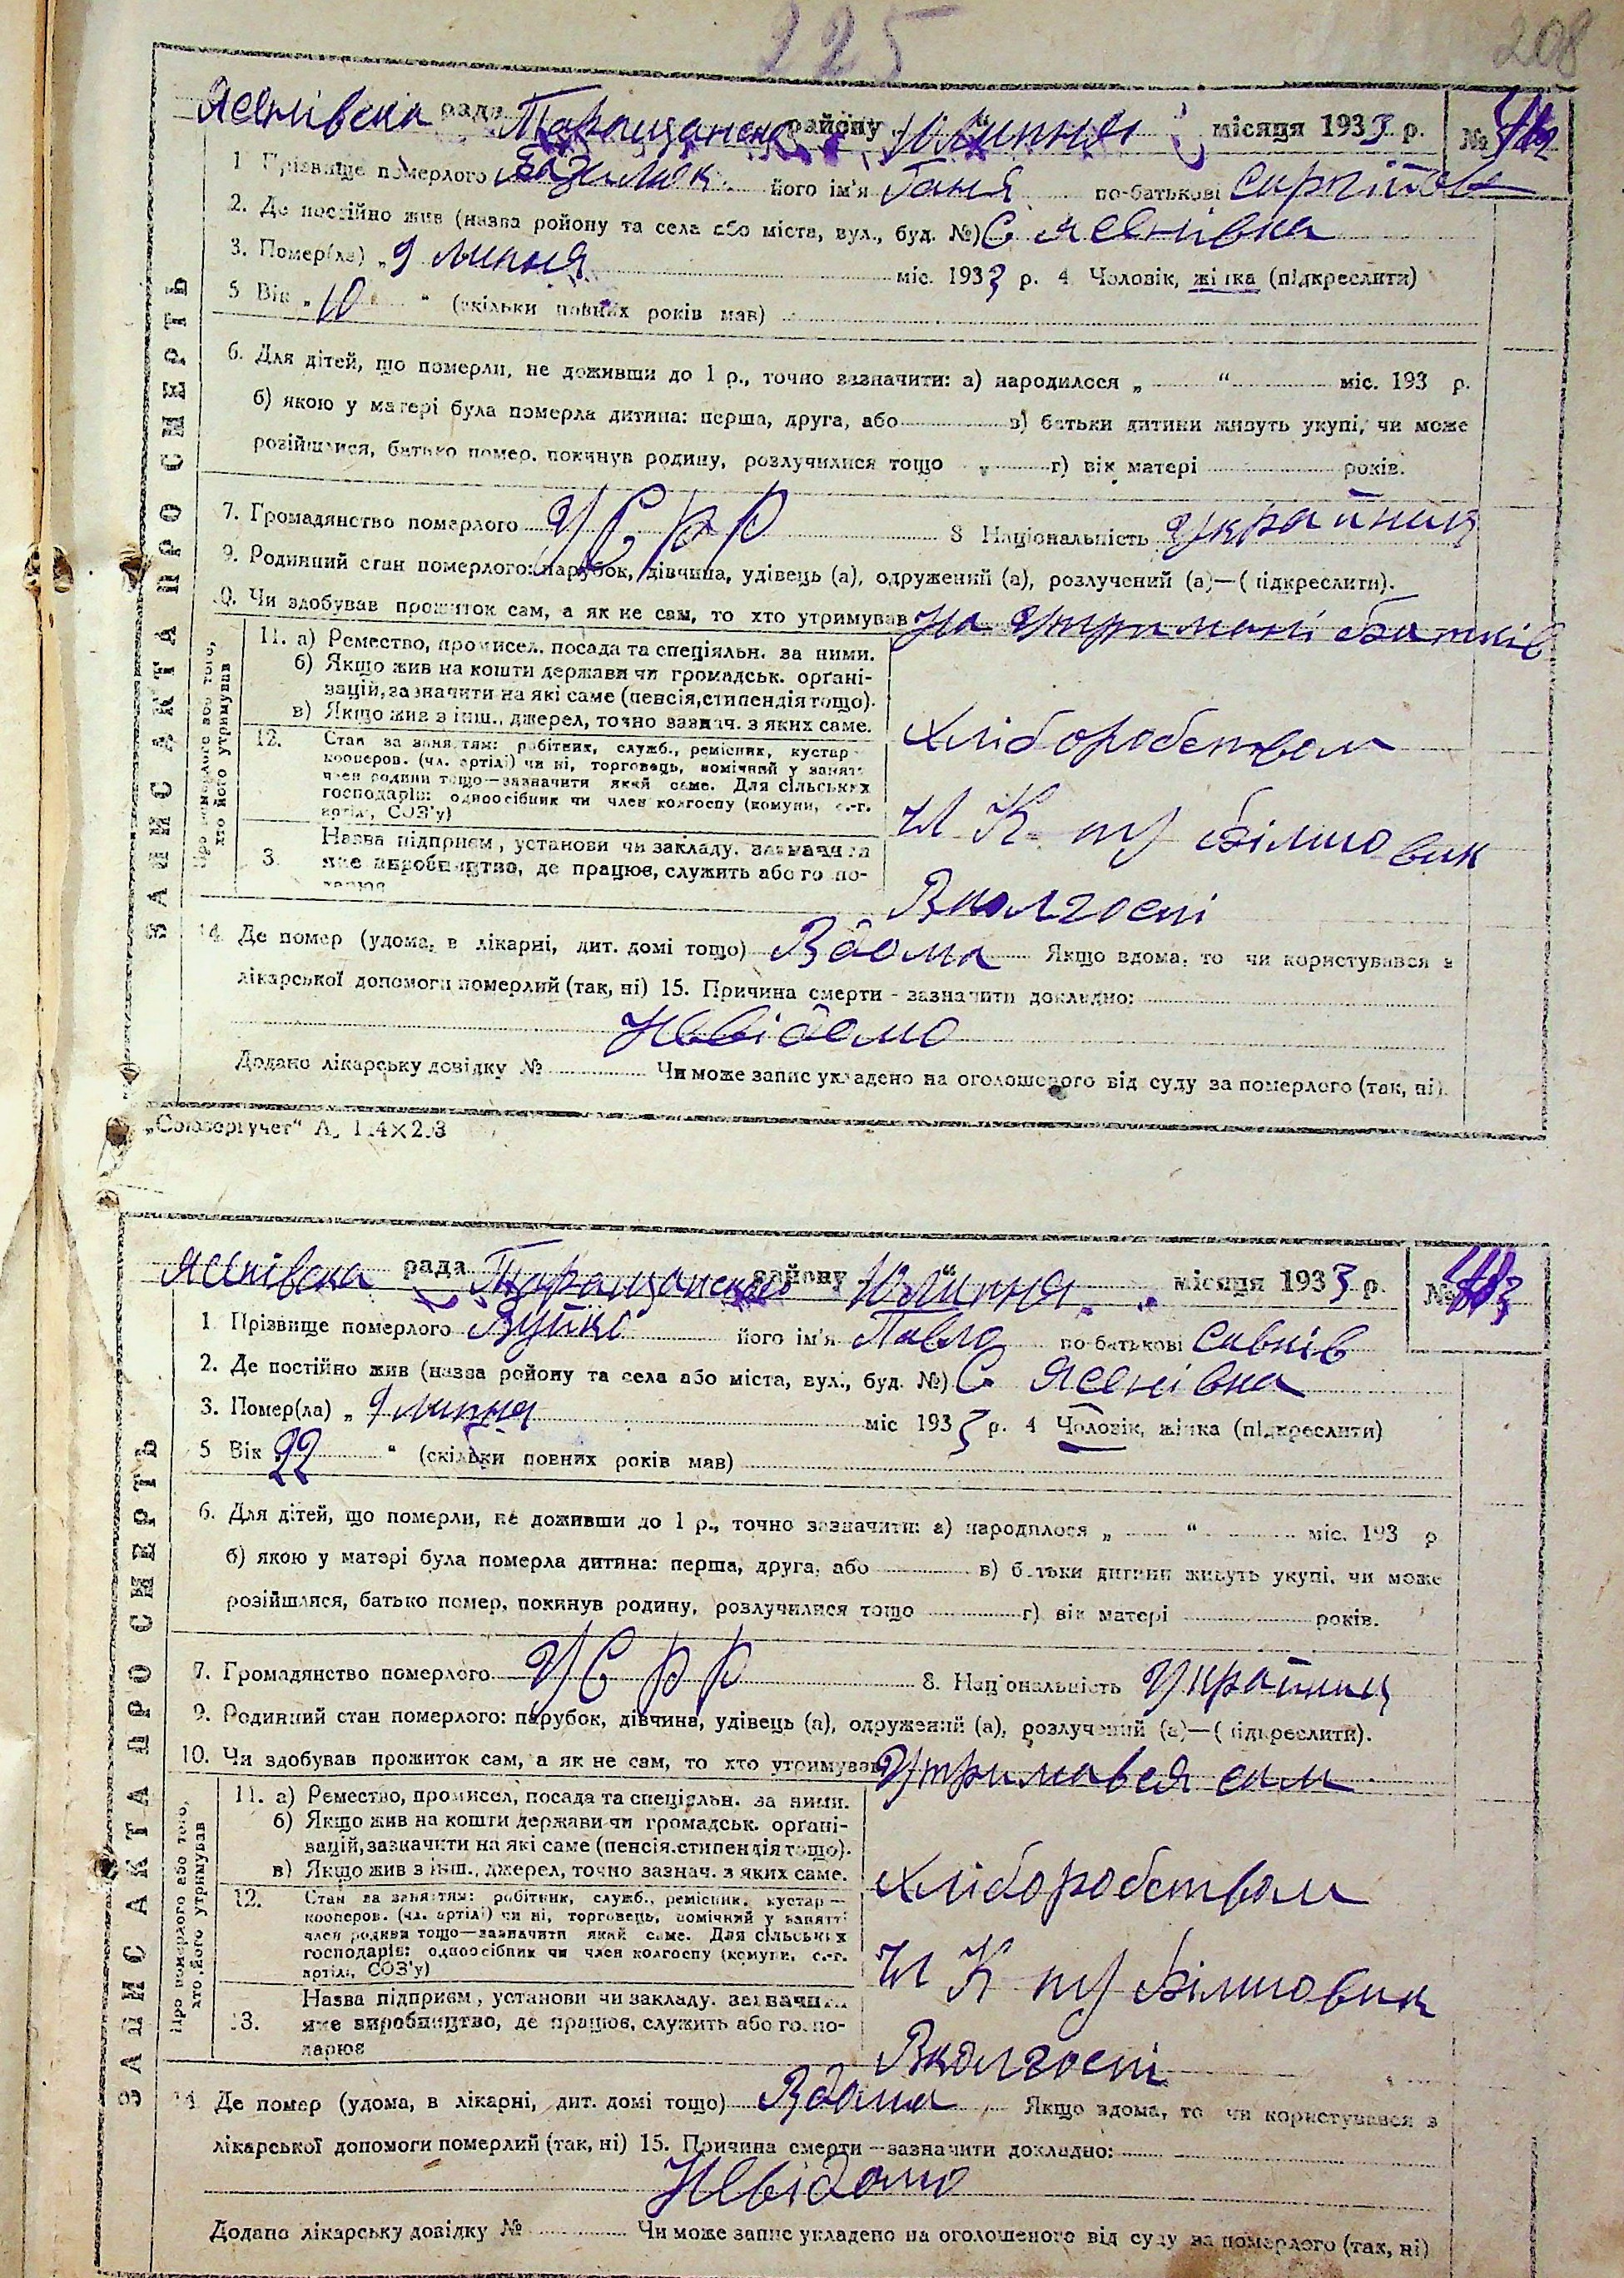 225
208
Ясенівська рада Таращансько району 10 липня місяця 1933 р. №
1 Прізвище померлого його ім'я Ганя по-батькові
2. Де постійно жив (назва району та села або міста, вул., буд. №) С Ясенівка
3. Помер(ла) „ 9 липня міс. 1933 р. 4 Чоловік, жінка (підкреслити)
5 Вік „ 10 “ (скільки повних років мав)
6. Для дітей, що померли, не доживши до 1 р., точно зазначити: а) народилося „ “ міс. 193 р.
б) якою у матері була померла дитина: перша, друга, або в) батьки дитини живуть укупі, чи може
розійшлися, батько помер, покинув родину, розлучилися тощо г) вік матері років.
7. Громадянство померлого УСРР 8 Національність Україниця
9. Родинний стан померлого: парубок, дівчина, удівець (а), одружений (а), розлучений (а)—(підкреслити).
0. Чи здобував прожиток сам, а як не сам, то хто утримував На утримані батьків
ЗАПИС АКТА ПРО СМЕРТЬ
Про померлого або того,
хто його утримував
11. а) Ремество, промисел, посада та спеціяльн. за ними.
б) Якщо жив на кошти держави чи громадськ. органі-
зацій, зазначити на які саме (пенсія, стипендія тощо).
в) Якщо жив з інш., джерел, точно зазнач. з яких саме.
хліборобством
12. Стан за заняттям: робітник, служб., ремісник, кустар
кооперов. (чл. артілі) чи ні, торговець, помічний у занятт
член родини тощо—зазначити який саме. Для сільських
господарів: одноосібник чи член колгоспу (комуни, с.-г.
артілі, СОЗ'у)
Назва підприєм, установи чи закладу, зазначити
3. яке виробництво, де працює, служить або го по-
дарює
більшовик
В колгоспі
14 Де помер (удома, в лікарні, дит. домі тощо) Вдома Якщо вдома, то чи користувався з
лікарської допомоги померлий (так, ні) 15. Причина смерти - зазначити докладно:
Невідомо
Додано лікарську довідку № Чи може запис укладено на оголошеного від суду за померлого (так, ні).
„Союзоргучет“
Ясенівська рада Таращансько району 10 липня місяця 1933 р. №
1 Прізвище померлого його ім'я Павло по-батькові Савків
2. Де постійно жив (назва району та села або міста, вул., буд. №) С Ясенівка
3. Помер(ла) „ 9 липня міс 1933 р. 4 Чоловік, жінка (підкреслити)
5 Вік 22 “ (скільки повних років мав)
6. Для дітей, що померли, не доживши до 1 р., точно зазначити: а) народилося „ “ міс. 193 р
б) якою у матері була померла дитина: перша, друга, або в) батьки дитини живуть укупі, чи може
розійшлися, батько помер, покинув родину, розлучилися тощо г) вік матері років.
7. Громадянство померлого УСРР 8. Національність Україниц
9. Родинний стан померлого: парубок, дівчина, удівець (а), одружений (а), розлучений (а)—(підкреслити).
10. Чи здобував прожиток сам, а як не сам, то хто утримував Утримався сам
ЗАПИС АКТА ПРО СМЕРТЬ
Про померлого або того,
хто його утримував
11. а) Ремество, промисел, посада та спеціяльн. за ними.
б) Якщо жив на кошти держави чи громадськ. органі-
зацій, зазначити на які саме (пенсія. стипендія тощо).
в) Якщо жив з інш., джерел, точно зазнач. з яких саме.
хліборобством
12. Стан за заняттям: робітник, служб., ремісник, кустар—
кооперов. (чл. артілі) чи ні, торговець, помічний у занятті
член родини тощо—зазначити який саме. Для сільських
господарів: одноосібник чи член колгоспу (комуни, с.-г.
артілі, СОЗ'у)
Назва підприєм, установи чи закладу, зазначити
13. яке виробництво, де працює, служить або го.по-
дарює
більшовик
В колгоспі
14 Де помер (удома, в лікарні, дит. домі тощо) Вдома Якщо вдома, то чи користувався з
лікарської допомоги померлий (так, ні) 15. Причина смерти—зазначити докладно:
Невідомо
Додано лікарську довідку № Чи може запис укладено на оголошеного від суду за померлого (так, ні)